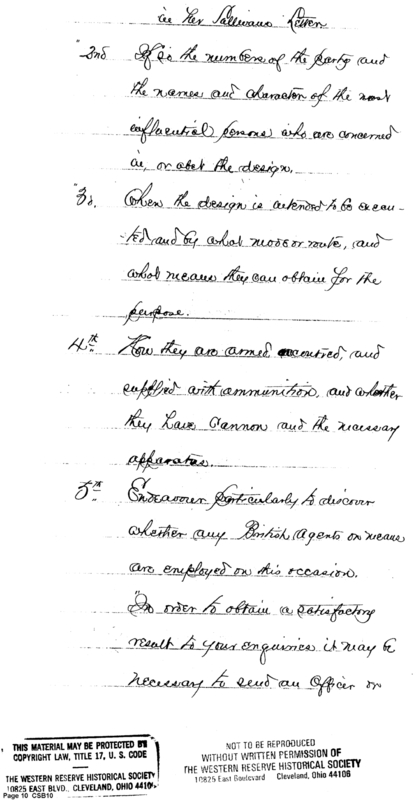 in Mr Sullivans Letter
"2nd If so the numbers of the party and
the names and character of the most
influential persons who are concerned
in, or abet the design.
"3d. When the design is intended to be execu-
-ted and by what mode or route, and
what means they can obtain for the
purpose.
4th How they are armed accoutred, and
supplied with ammunition, and whether
they have Cannon and the necessary
apparatus.
5th Endeavour particularly to discover
whether any British Agents or means
are employed on this occasion.
"In order to obtain a satisfactory
result to your enquiries it may be
necessary to send an Officer or
THIS MATERIAL MAY BE PROTECTED BY
COPYRIGHT LAW, TITLE 17, U. S. CODE
THE WESTERN RESERVE HISTORICAL SOCIETY
10825 EAST BLVD., CLEVELAND, OHIO 4410
Page 10 CSB10
NOT TO BE REPRODUCED
WITHOUT WRITTEN PERMISSION OF
THE WESTERN RESERVE HISTORICAL SOCIETY
10825 East Boulevard Cleveland, Ohio 44106